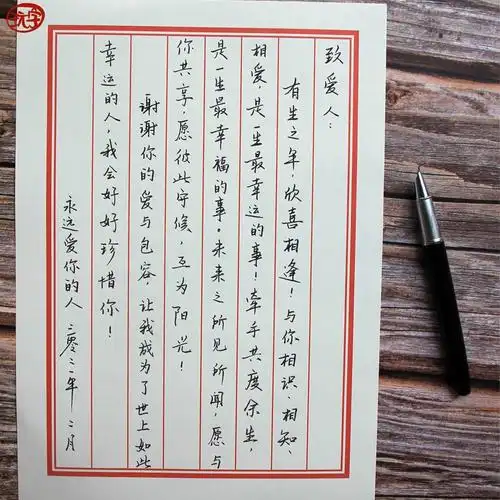 致爱人：
有生之年，欣喜相逢！与你相识、相知、
相爱，是一生最幸运的事！牵手共度余生，
是一生最幸福的事。未来之所见所闻，愿与
你共享，愿彼此守候，互为阳光！
谢谢你的爱与包容，让我成为了世上如此
幸运的人，我会好好珍惜你！
永远爱你的人 二零二一年 二月